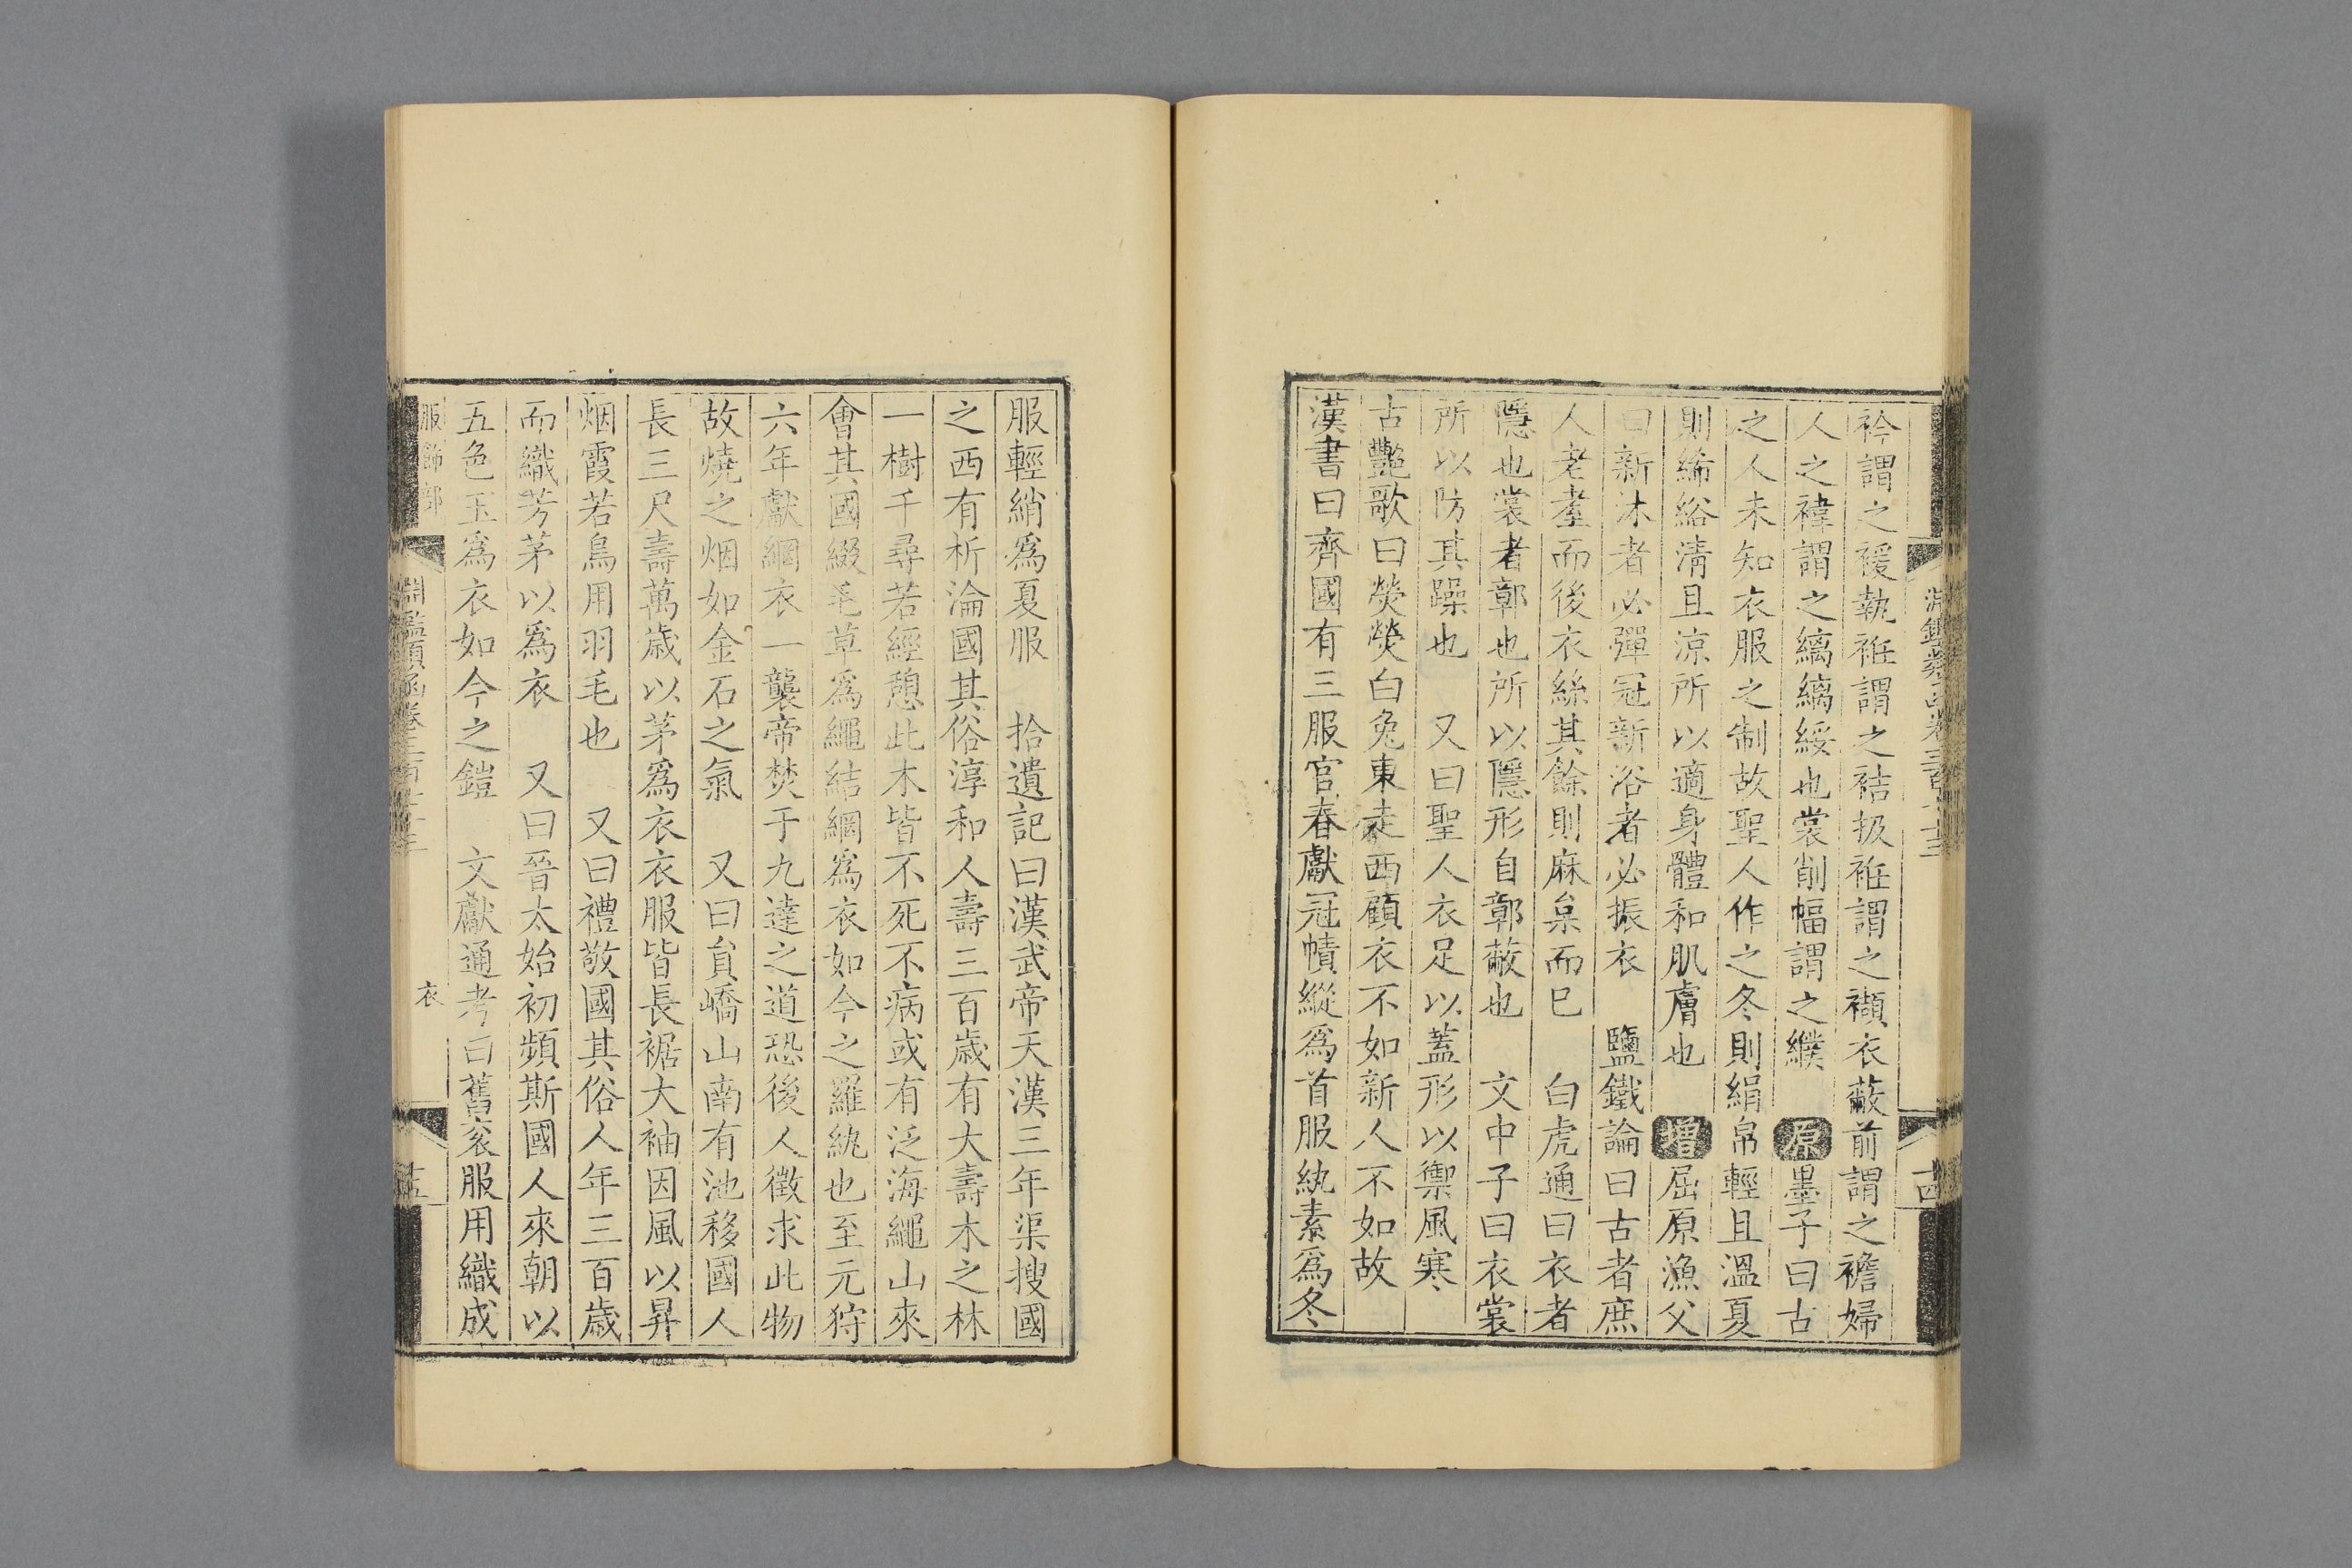 衿謂之褑執袵謂之袺扱袵謂之襭衣蔽前謂之襜婦
人之褘謂之縭縭緌也裳削幅謂之纀　原墨子曰古
之人未知衣服之制故聖人作之冬則絹帛輕且溫夏
則絺綌淸且凉所以適身體和肌膚也　增屈原漁父
曰新沐者必彈冠新浴者必振衣　鹽鐵論曰古者庶
人老耋而後衣絲其餘則麻枲而已　白虎通曰衣者
隱也裳者鄣也所以隱形自鄣蔽也　文中子曰衣裳
所以防其躁也　又曰聖人衣足以蓋形以禦風寒
古艷歌曰煢煢白兔東走西顧衣不如新人不如故
漢書曰齊國有三服官春獻冠幘縰爲首服紈素爲冬
服輕綃爲夏服　拾遺記曰漢武帝天漢三年渠搜國
之西有析淪國其俗淳和人壽三百歲有大壽木之林
一樹千尋若經憩此木皆不死不病或有泛海繩山來
會其國綴毛草爲繩結網爲衣如今之羅紈也至元狩
六年獻網衣一襲帝焚于九達之道恐後人徵求此物
故燒之烟如金石之氣　又曰貟嶠山南有池移國人
長三尺壽萬歲以茅爲衣衣服皆長裾大袖因風以昇
烟霞若鳥用羽毛也　又曰禮敬國其俗人年三百歲
而織芳茅以爲衣　又曰晉太始初頻斯國人來朝以
五色玉爲衣如今之鎧　文獻通考曰舊衮服用織成
服飾部　淵鑑類函卷三百七十三　衣　十五